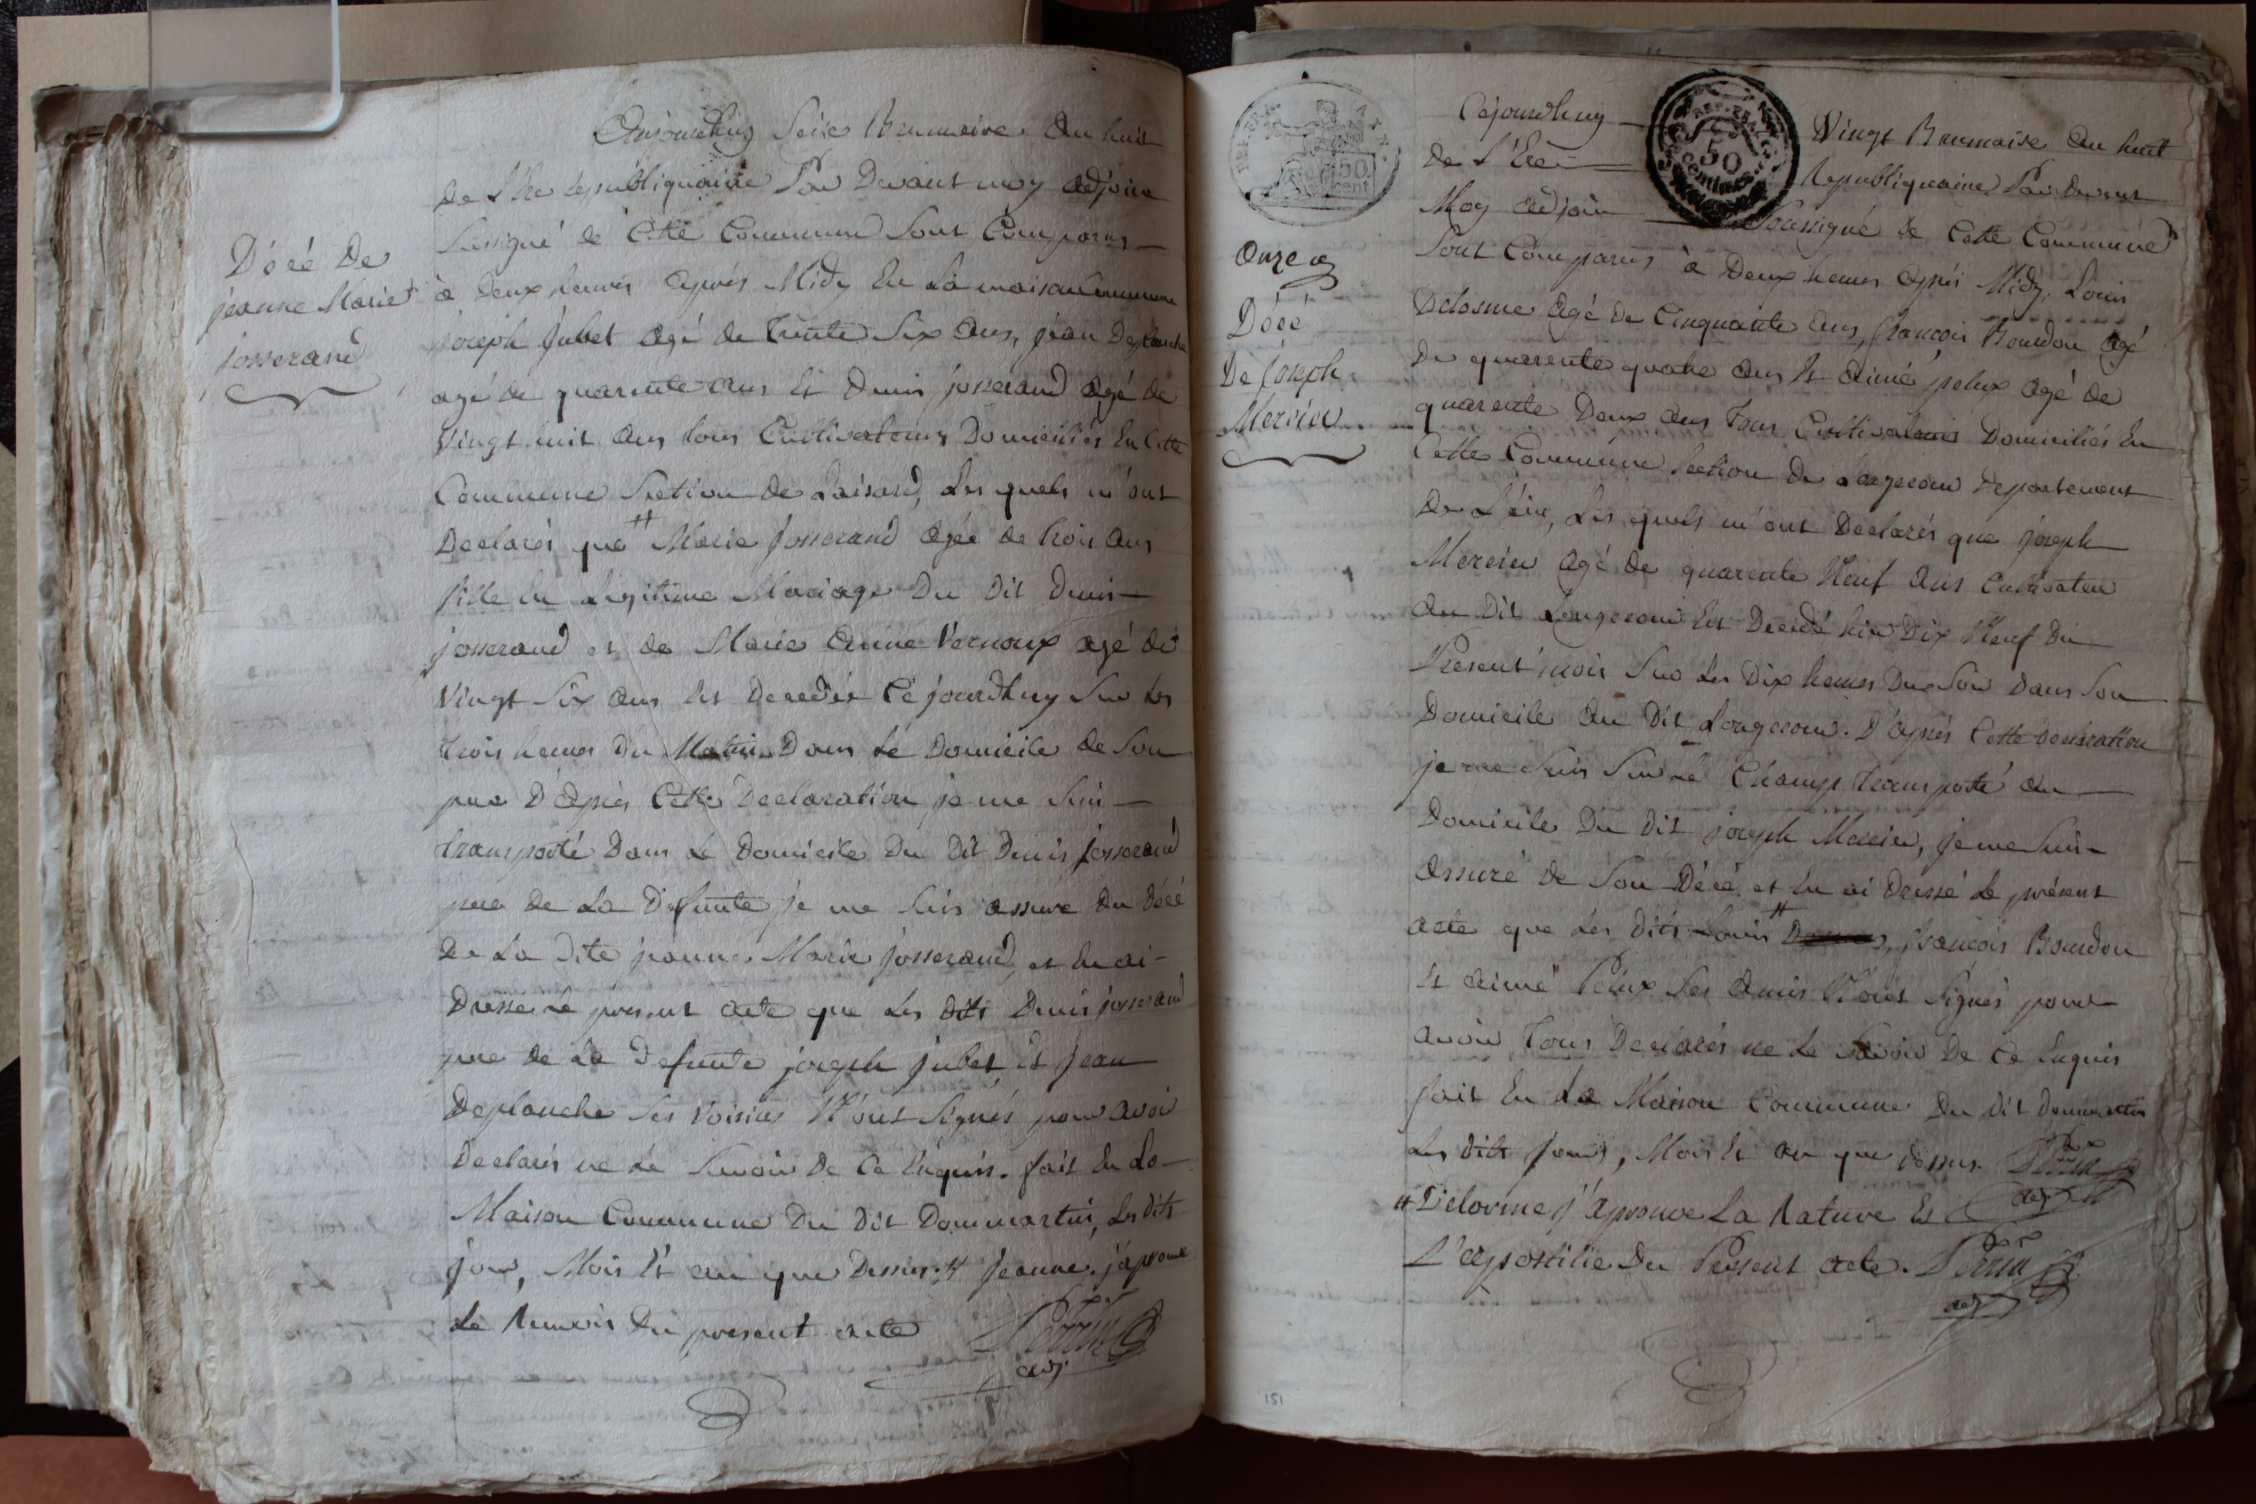 Décé De
jeanne Marie
josserand
Aujourdhuy Seise Brumaire An huit
De L'Ere Republiquaine Par Devant moy adjoint
Sussigné de Cette Commune Sont Comparus
à deux heures après Midy En La maison Commune
joseph Jubet agé de trente Six ans, jean Deplanche
agé de quarente ans Et Denis josserand agé de
Vingt huit ans tous Cultivateurs Domiciliés En Cette
Commune Section de Loisard, Les quels m'ont
Declarés que # Marie Josserand agée de trois ans
fille En Legitime Mariage Du Dit Denis
josserand et de Marie Anne Vernoux agé de
Vingt Six ans Est Decedée Cejourdhuy Sur Les
trois heures du Matin Dans Le Domicile de Son
pere D'après Cette Declaration je me Suis
transporté Dans Le Domicile Du Dit Denis Josserand
pere de La Defunte je me Suis assuré du décé
De La Dite jeanne Marie Josserand, et En ai
Dressé Le present acte que Les Dits Denis josserand
pere de La Defunte joseph Jubet Et Jean
Deplanche Ses Voisins N'ont Signés pour avoir
Declarés ne Le Savoir De Ce Enquis. fait En La
Maison Commune Du Dit Dommartin, Les Dits
jour, Mois Et an que Dessus. # Jeanne. j'aprouve
Le Renvois Du present acte
Perrin
adj.
50 cent.
REP. FRA.
50
centimes
Onze
Décé
De Joseph
Mercier
Cejourdhuy Vingt Brumaire An huit
De L'Ere Republiquaine Par Devant
Moy adjoint Soussigné de Cette Commune
Sont Comparus à Deux heures après Midy, Louis
Delosme agé de Cinquante ans, francois Bourdon agé
De quarente quatre ans Et Aimé pelux agé de
quarente Deux ans Tous Cultivateurs Domiciliés En
Cette Commune Section de Longecour Departement
De L'ain, Les quels m'ont Declarés que joseph
Mercier agé de quarente Neuf ans Cultivateur
au Dit Longecour Est Decedé hier Dix Neuf Du
Present mois Sur Les Dix heures Du Soir Dans Son
Domicile au Dit Longecour. D'après Cette Declaration
je me Suis Sur Le Champ transporté au
Domicile Du Dit joseph Mercier, je me Suis
assuré de Son Décé et En ai Dressé Le présent
acte que Les Dits Louis # francois Bourdon
Et aimé Pelux Ses amis N'ont Signés pour
avoir Tous Declarés ne Le Savoir De Ce Enquis
fait En La Maison Commune Du Dit Dommartin
Les Dits Jours, Mois Et an que dessus. Perrin
adj.
# Delorme j'aprouve La Rature Et
L'apostilie Du Pressent acte. Perrin
adj.
151